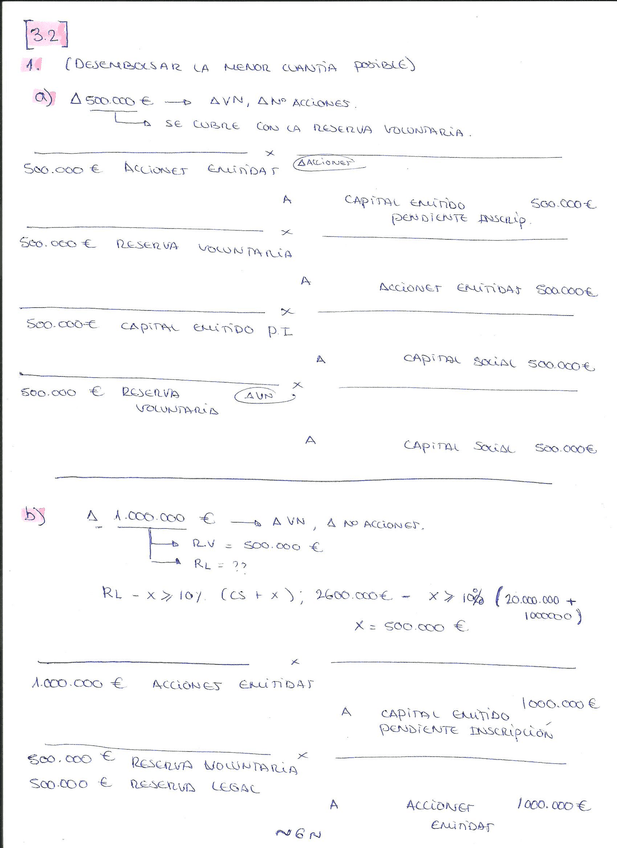 [3.2]
1. (DESEMBOLSAR LA MENOR CUANTIA POSIBLE)
a) Δ 500.000 € → ΔVN, Δ Nº ACCIONES.
→ SE CUBRE CON LA RESERVA VOLUNTARIA.
x
500.000 € ACCIONES EMITIDAS ΔACCIONES
A CAPITAL EMITIDO 500.000 €
PENDIENTE INSCRIP.
x
500.000 € RESERVA VOLUNTARIA
A ACCIONES EMITIDAS 500.000€
x
500.000€ CAPITAL EMITIDO P.I
A CAPITAL SOCIAL 500.000€
x
500.000 € RESERVA ΔVN
VOLUNTARIA
A CAPITAL SOCIAL 500.000€
b) Δ 1.000.000 € → ΔVN, Δ Nº ACCIONES.
→ RV = 500.000 €
→ RL = ??
RL - X ≥ 10% (CS + X); 2600.000€ - X ≥ 10% (20.000.000 +
1000000)
X = 500.000 €
x
1.000.000 € ACCIONES EMITIDAS
1000.000 €
A CAPITAL EMITIDO
PENDIENTE INSCRIPCIÓN
x
500.000 € RESERVA VOLUNTARIA
500.000 € RESERVA LEGAL
A ACCIONES 1000.000 €
EMITIDAS
~6~